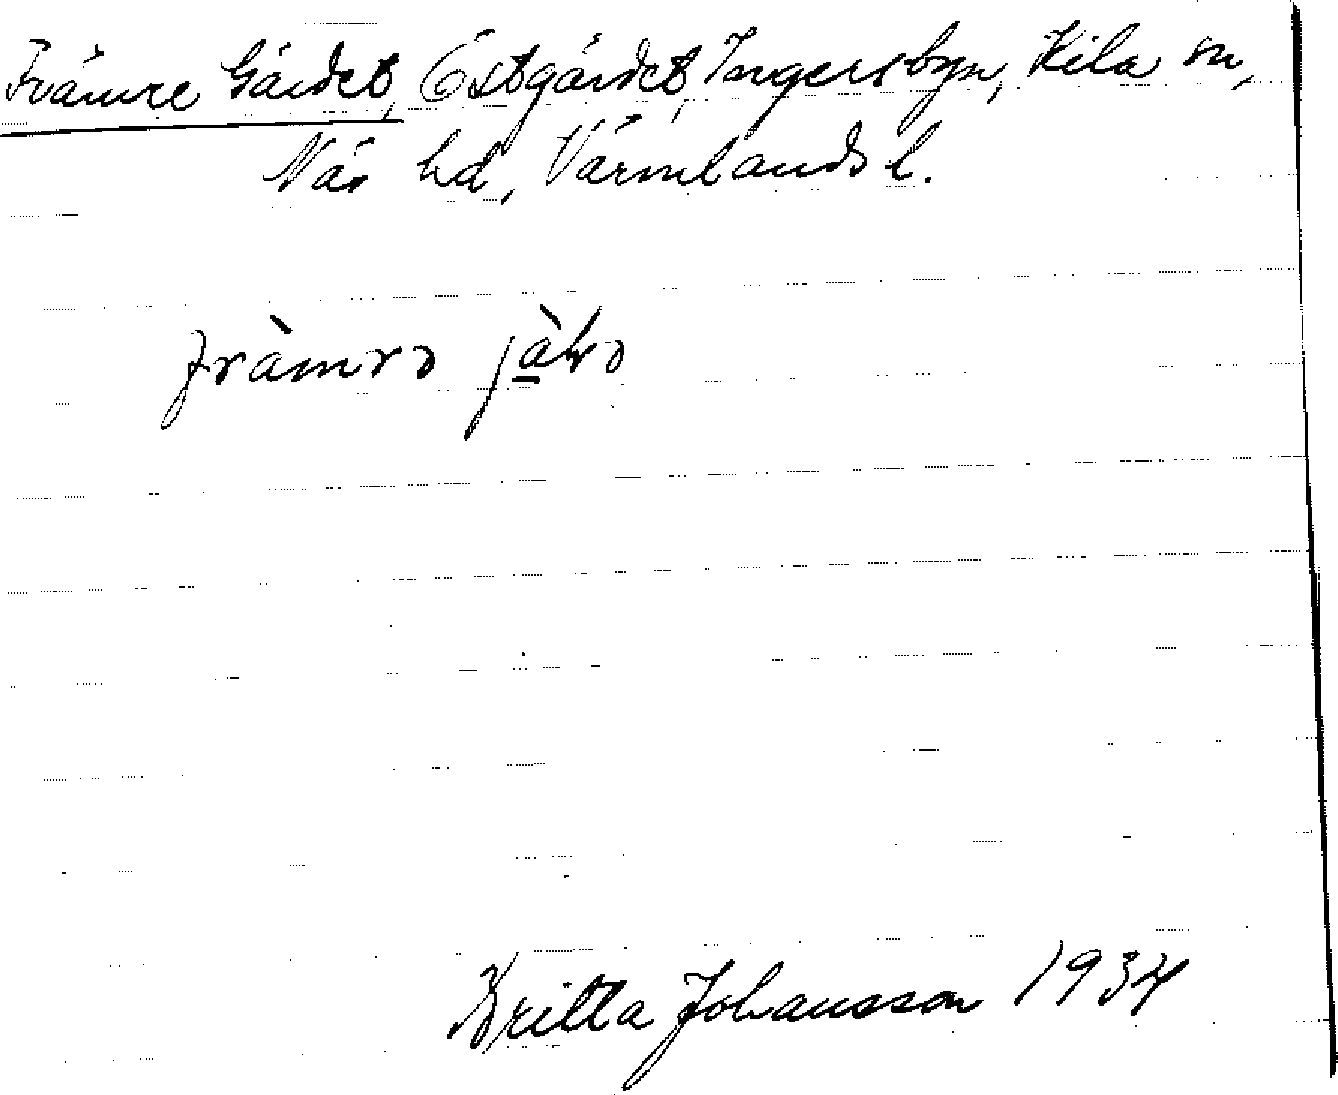 Främre Gärdet, Östgärdet, Ingersbyn, Kila sn,
Näs hd, Värmlands l.
Britta Johansson 1934